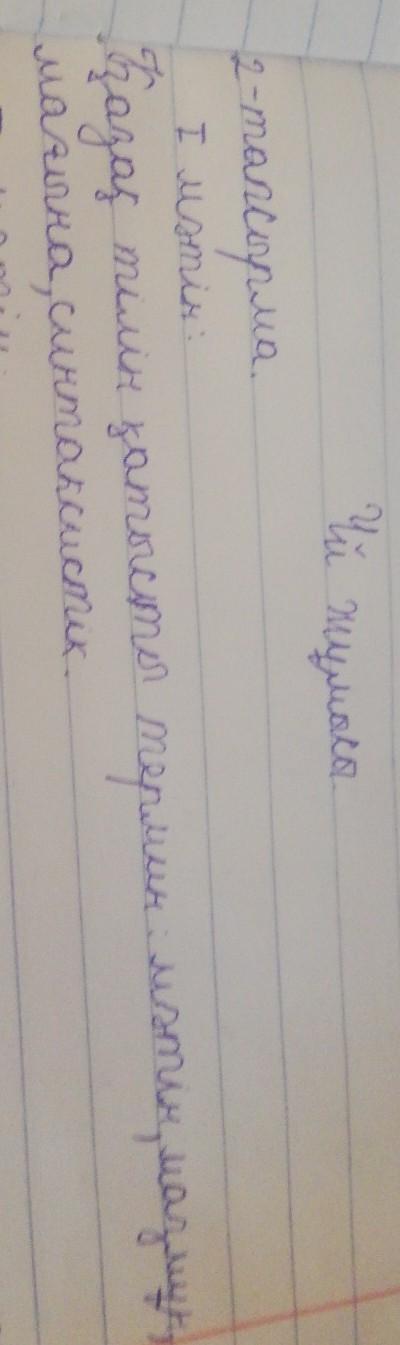 Үй жұмысы
2-тапсырма.
I мәтін:
Қазақ тілін қатысты термин: мәтін, мазмұн,
мағына, синтаксистік.